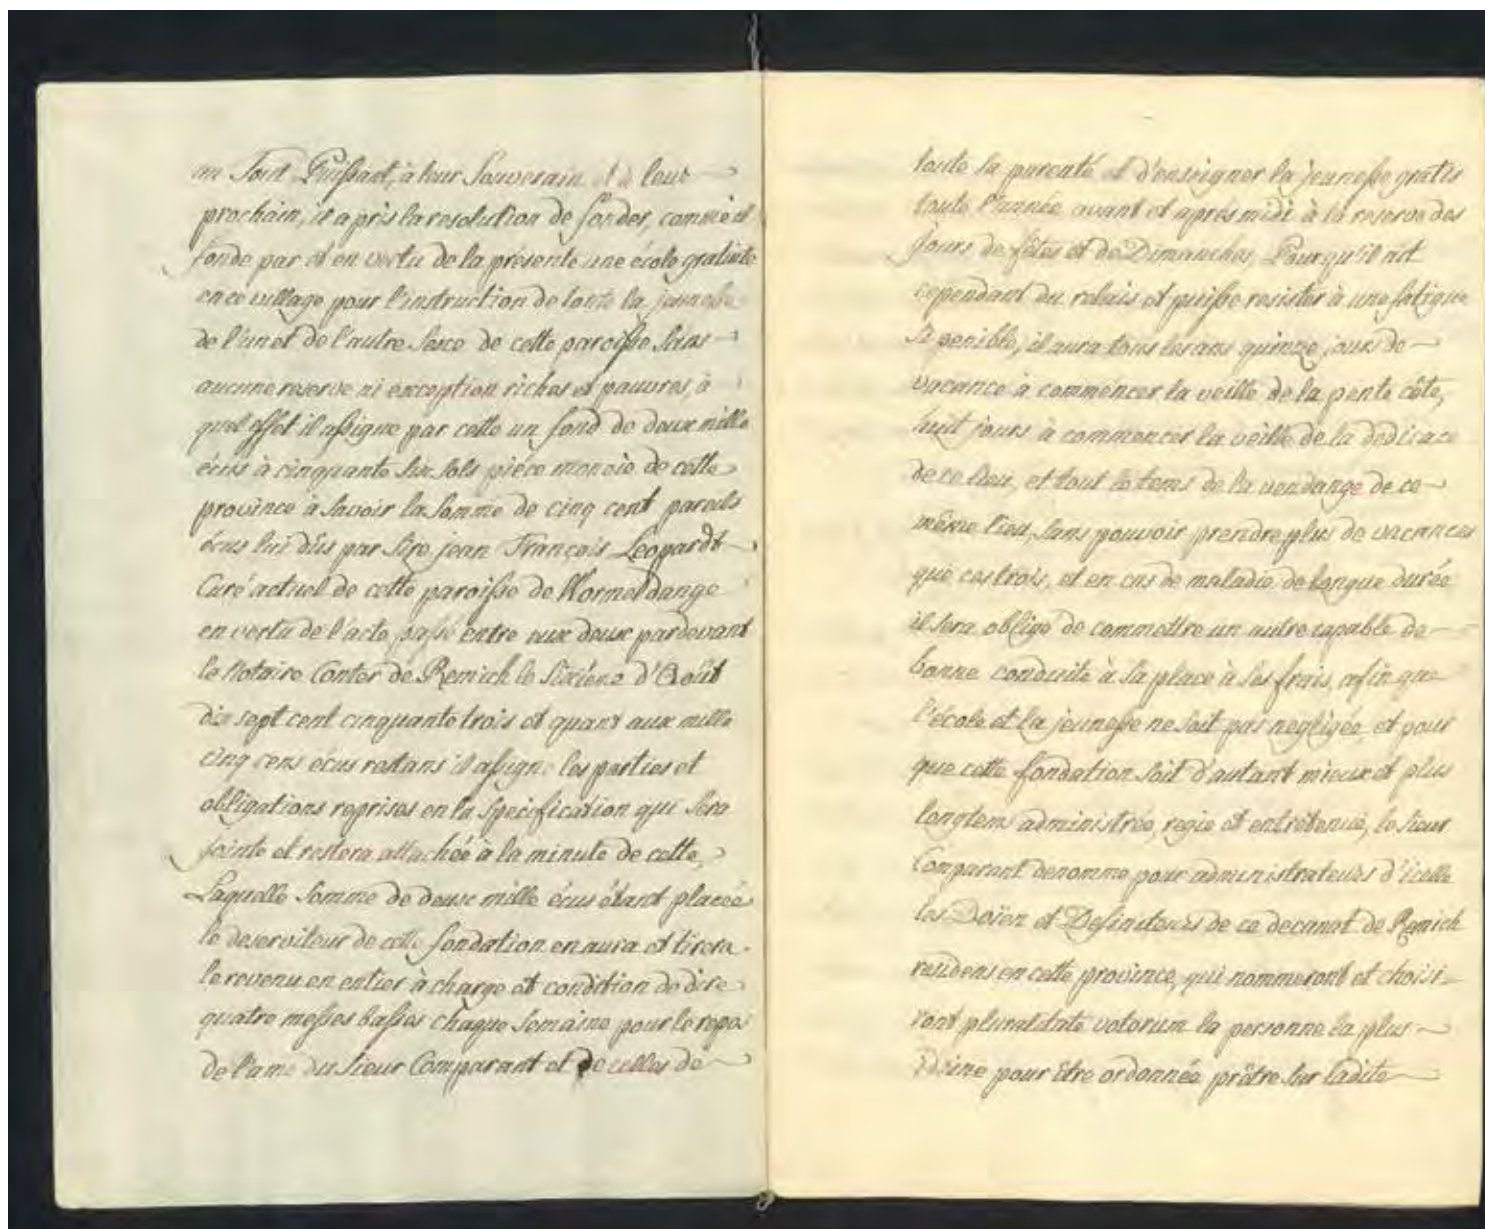 au Tout Puissant, à leur Souverain et à leur
prochain, il a pris la resolution de fonder, comme il
fonde par et en vertu de la présente une école gratuite
en ce village pour l'instruction de toute la jeunesse
de l'un et de l'autre Sexe de cette paroisse sans
aucune reserve ni exception riches et pauvres, à
quel effet il assigne par cette un fond de deux mille
écus à cinquante six sols piéce monoie de cette
province à Savoir la Somme de cinq cent pareils
écus lui dûs par Sire jean François Leonardt
Curé actuel de cette paroisse de Wormeldange
en vertu de l'acte passé entre eux deux pardevant
le Notaire Conter de Remich le Sixiéme d'Août
dix sept cent cinquante trois et quant aux mille
cinq cens écus restans il assigne les parties et
obligations reprises en la Specification qui Sera
jointe et restera attachée à la minute de cette,
Laquelle Somme de deux mille écus étant placée
le deserviteur de cette fondation en aura et tirera
le revenu en entier à charge et condition de dire
quatre messes basses chaque Semaine pour le repos
de l'ame du Sieur Comparant et de celles de
toute sa parenté et d'enseigner la jeunesse gratis
toute l'année avant et aprés midi à la reserve des
jours de fêtes et de Dimanches, Pour qu'il ait
cependant du relais et puisse resister à une fatigue
Si penible, il aura tous les ans quinze jours de
vacance à commencer la veille de la pente côte,
huit jours à commencer la veille de la dedicace
de ce lieu, et tout le tems de la vendange de ce
même lieu, Sans pouvoir prendre plus de vacances
que ces trois, et en cas de maladie de longue durée
il Sera obligé de commettre un autre capable de
bonne conduite à Sa place à Ses frais, afin que
l'école et la jeunesse ne Soit pas negligée, et pour
que cette fondation Soit d'autant mieux et plus
longtems administrée, regie et entretenuë, le Sieur
Comparant denomme pour administrateurs d'icelle
les Doïen et Definiteurs de ce decanat de Remich
residens en cette province, qui nommeront et choisi-
ront pluralitate votorum la personne la plus
idoine pour être ordonnée prêtre Sur ladite